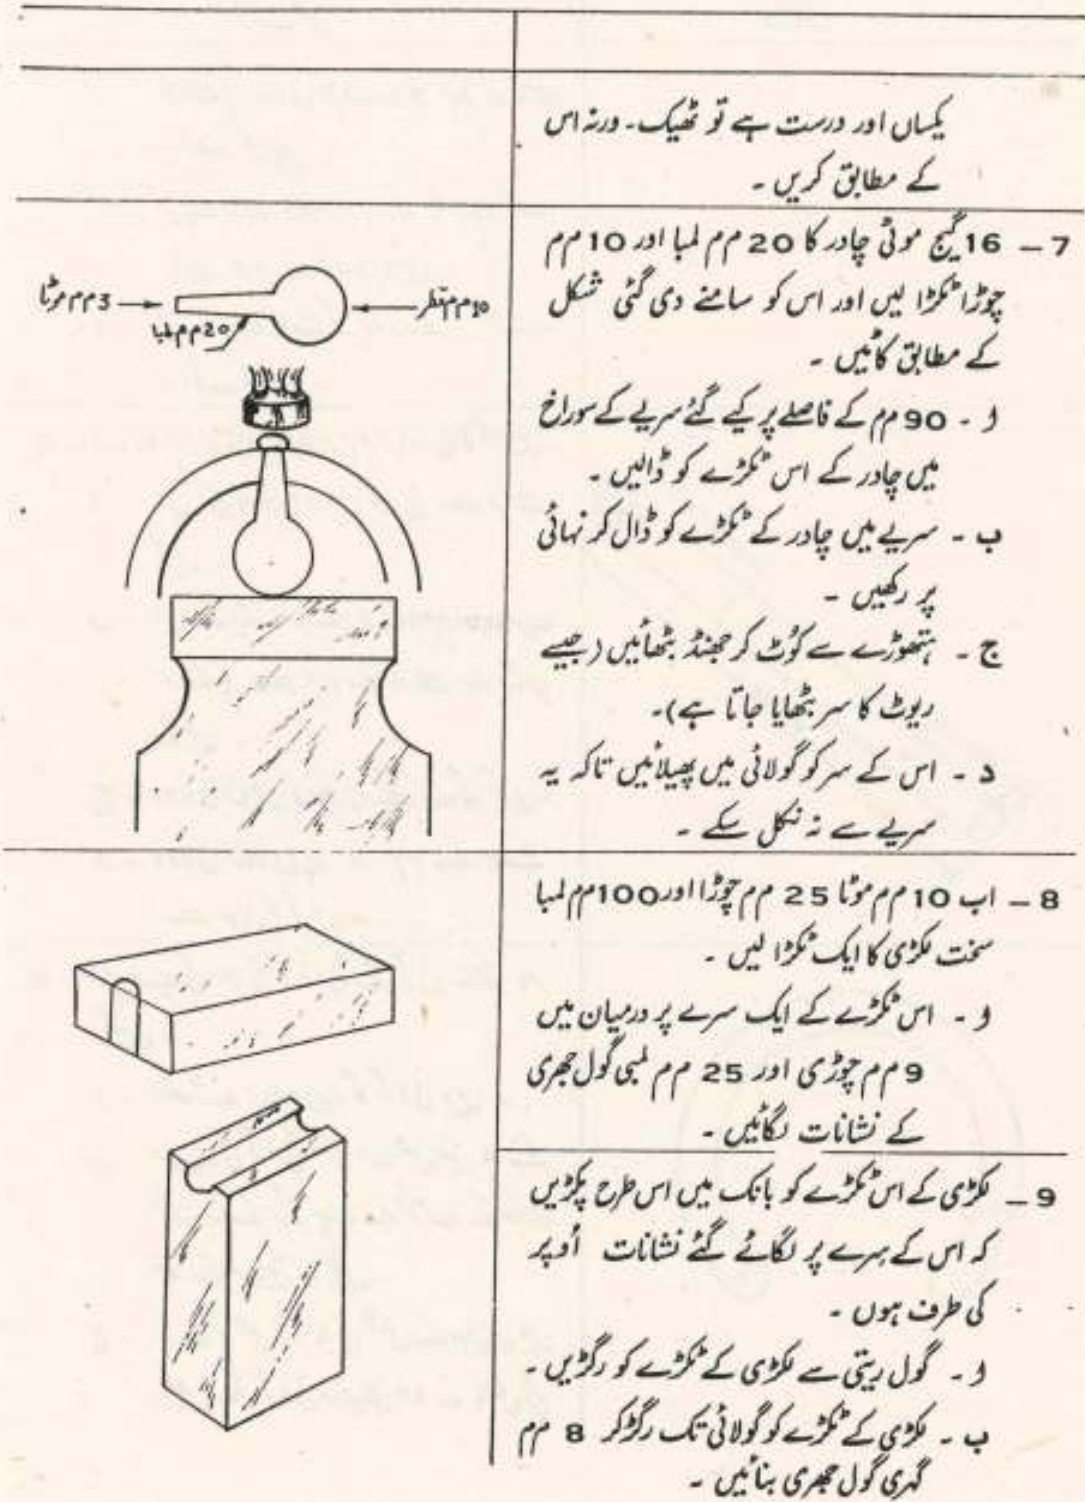 یکساں اور درست ہے تو ٹھیک۔ ورنہ اس
کے مطابق کریں ۔
7 – 16 گیج موٹی چادر کا 20 م م لمبا اور 10 م م
چوڑا ٹکڑا لیں اور اس کو سامنے دی گئی شکل
کے مطابق کاٹیں ۔
ا - 90 م م کے فاصلے پر کیے گئے سریے کے سوراخ
میں چادر کے اس ٹکڑے کو ڈالیں ۔
ب - سریے میں چادر کے ٹکڑے کو ڈال کر نہائی
پر رکھیں ۔
ج - ہتھوڑے سے کُوٹ کر جھنڈ بٹھائیں (جیسے
ریوٹ کا سر بٹھایا جاتا ہے)۔
د - اس کے سر کو گولائی میں پھیلائیں تاکہ یہ
سریے سے نہ نکل سکے ۔
10 م م قطر
3 م م موٹا
20 م م لمبا
8 – اب 10 م م موٹا 25 م م چوڑا اور 100 م م لمبا
سخت لکڑی کا ایک ٹکڑا لیں ۔
ا - اس ٹکڑے کے ایک سرے پر درمیان میں
9 م م چوڑی اور 25 م م لمبی گول جھری
کے نشانات لگائیں ۔
9 – لکڑی کے اس ٹکڑے کو بانک میں اس طرح پکڑیں
کہ اس کے سِرے پر لگائے گئے نشانات اُوپر
کی طرف ہوں ۔
ا - گول ریتی سے لکڑی کے ٹکڑے کو رگڑیں ۔
ب - لکڑی کے ٹکڑے کو گولائی تک رگڑ کر 8 م م
گہری گول جھری بنائیں ۔